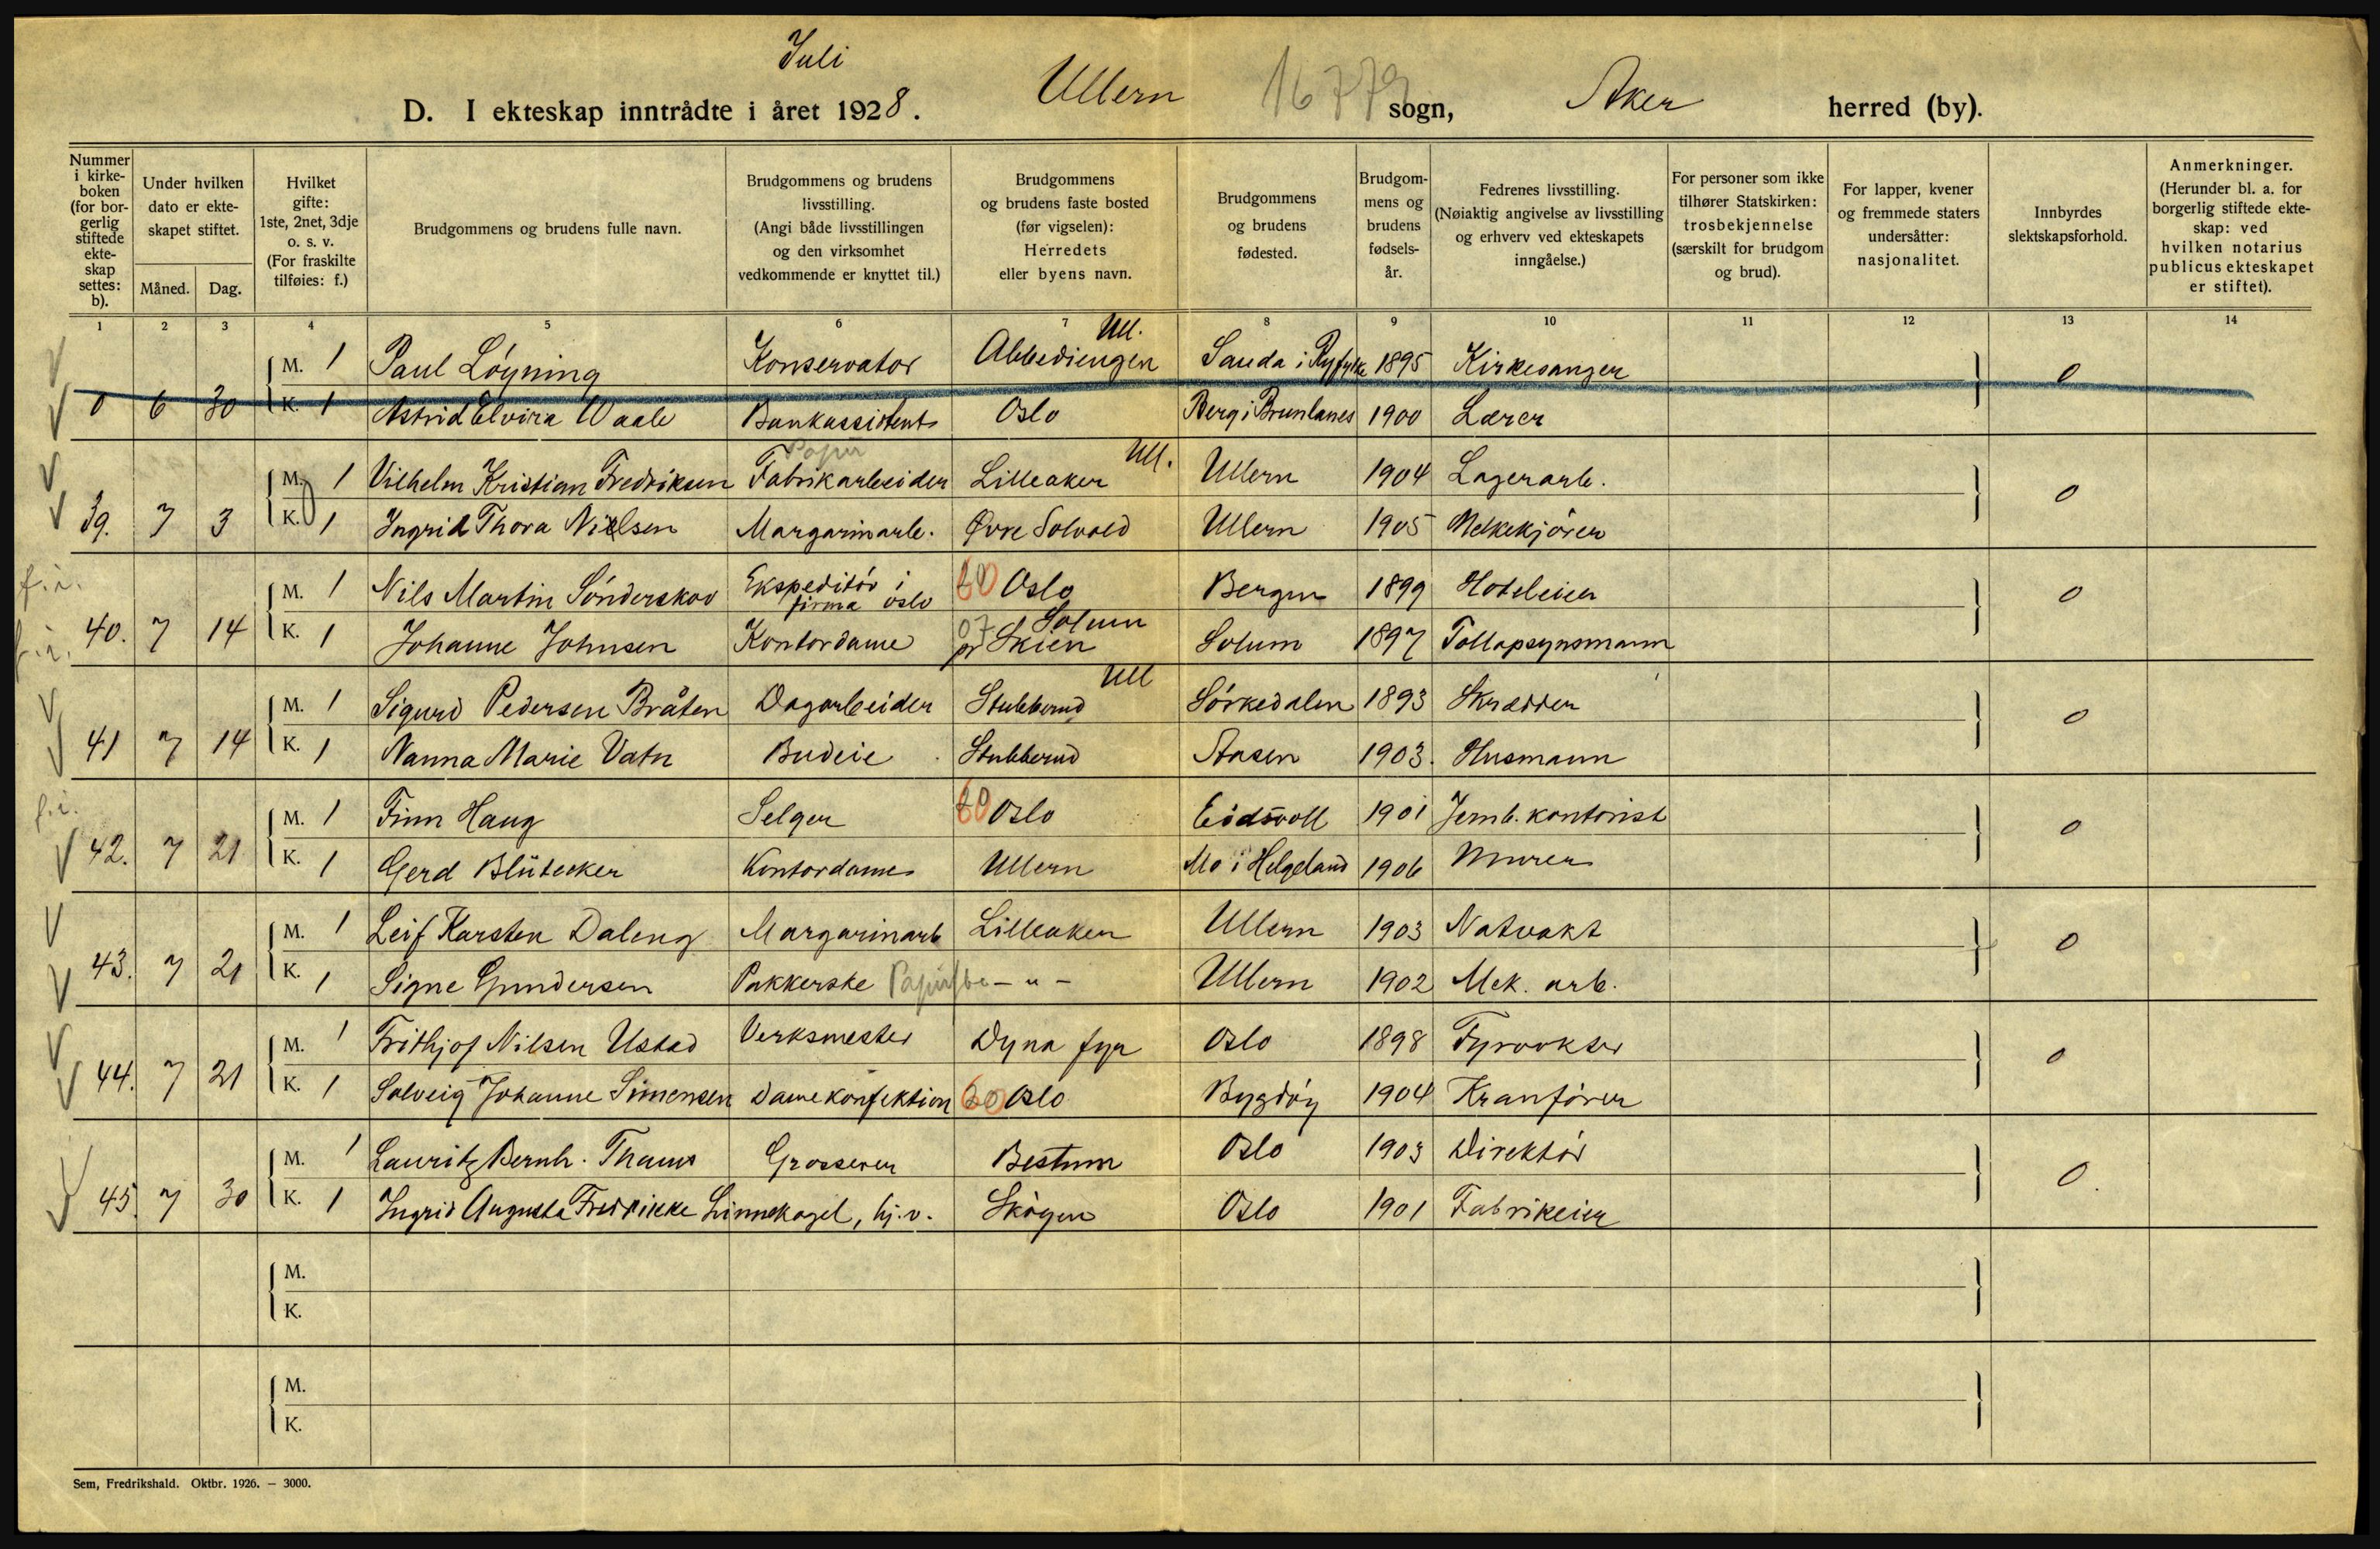 Juli
D. I ekteskap inntrådte i året 1928. Ullern 16779 sogn, Aker herred (by).
Nummer i kirke-boken (for bor-gerlig stiftede ekte-skap settes: b).
Under hvilken dato er ekte-skapet stiftet.
Måned. Dag.
Hvilket gifte: 1ste, 2net, 3dje o. s. v. (For fraskilte tilføies: f.)
Brudgommens og brudens fulle navn.
Brudgommens og brudens livsstilling. (Angi både livsstillingen og den virksomhet vedkommende er knyttet til.)
Brudgommens og brudens faste bosted (før vigselen): Herredets eller byens navn.
Brudgommens og brudens fødested.
Brudgom-mens og brudens fødsels-år.
Fedrenes livsstilling. (Nøiaktig angivelse av livsstilling og erhverv ved ekteskapets inngåelse.)
For personer som ikke tilhører Statskirken: trosbekjennelse (særskilt for brudgom og brud).
For lapper, kvener og fremmede staters undersåtter: nasjonalitet.
Innbyrdes slektskapsforhold.
Anmerkninger. (Herunder bl. a. for borgerlig stiftede ekte-skap: ved hvilken notarius publicus ekteskapet er stiftet).
1 2 3 4 5 6 7 8 9 10 11 12 13 14
Ull.
M. 1 Paul Løyning Konservator Abbediengen Sauda i Ryfylke 1895 Kirkesanger 0
0 6 30 K. 1 Astrid Elvira Waale Bankassistent Oslo Berg i Brunlanes 1900 Lærer
Papir Ull.
M. 1 Vilhelm Kristian Fredriksen Fabrikarbeider Lilleaker Ullern 1904 Lagerarb. 0
39. 7 3 K. 1 Ingrid Thora Nielsen Margarinarb. Øvre Solvold Ullern 1905 Melkekjører
f.i. M. 1 Nils Martin Sønderskov Ekspeditør i firma Oslo 60 Oslo Bergen 1899 Hoteleier 0
07 Solum
f.i. 40. 7 14 K. 1 Johanne Johnsen Kontordame pr Skien Solum 1897 Tollopsynsmann
Ull
M. 1 Sigurd Pedersen Bråten Dagarbeider Stubberud Sørkedalen 1893 Skredder 0
41 7 14 K. 1 Nanna Marie Vatn Budeie Stubberud Aasen 1903. Husmann
f.i. M. 1 Finn Haug Selger 60 Oslo Eidsvoll 1901 Jernb. kontorist 0
42. 7 21 K. 1 Gerd Blütecker Kontordame Ullern Mo i Helgeland 1906 Murer
M. 1 Leif Karsten Daleng Margarinarb Lilleaker Ullern 1903 Natvakt 0
43. 7 21 K. 1 Signe Gundersen Pakkerske Papirfbr - " - Ullern 1902 Mek. arb.
M. 1 Frithjof Nilsen Ustad Verksmester Dyna fyr Oslo 1898 Fyrvokter 0
44. 7 21 K. 1 Solveig Johanne Simensen Damekonfektion 60 Oslo Bygdøy 1904 Kranfører
M. 1 Lauritz Bernh. Thams Grosserer Bestum Oslo 1903 Direktør 0.
45. 7 30 K. 1 Ingrid Augusta Fredrikke Linnekogel, hj.v. Skøyen Oslo 1901 Fabrikeier
M.
K.
M.
K.
Sem, Fredrikshald. Oktbr. 1926. — 3000.